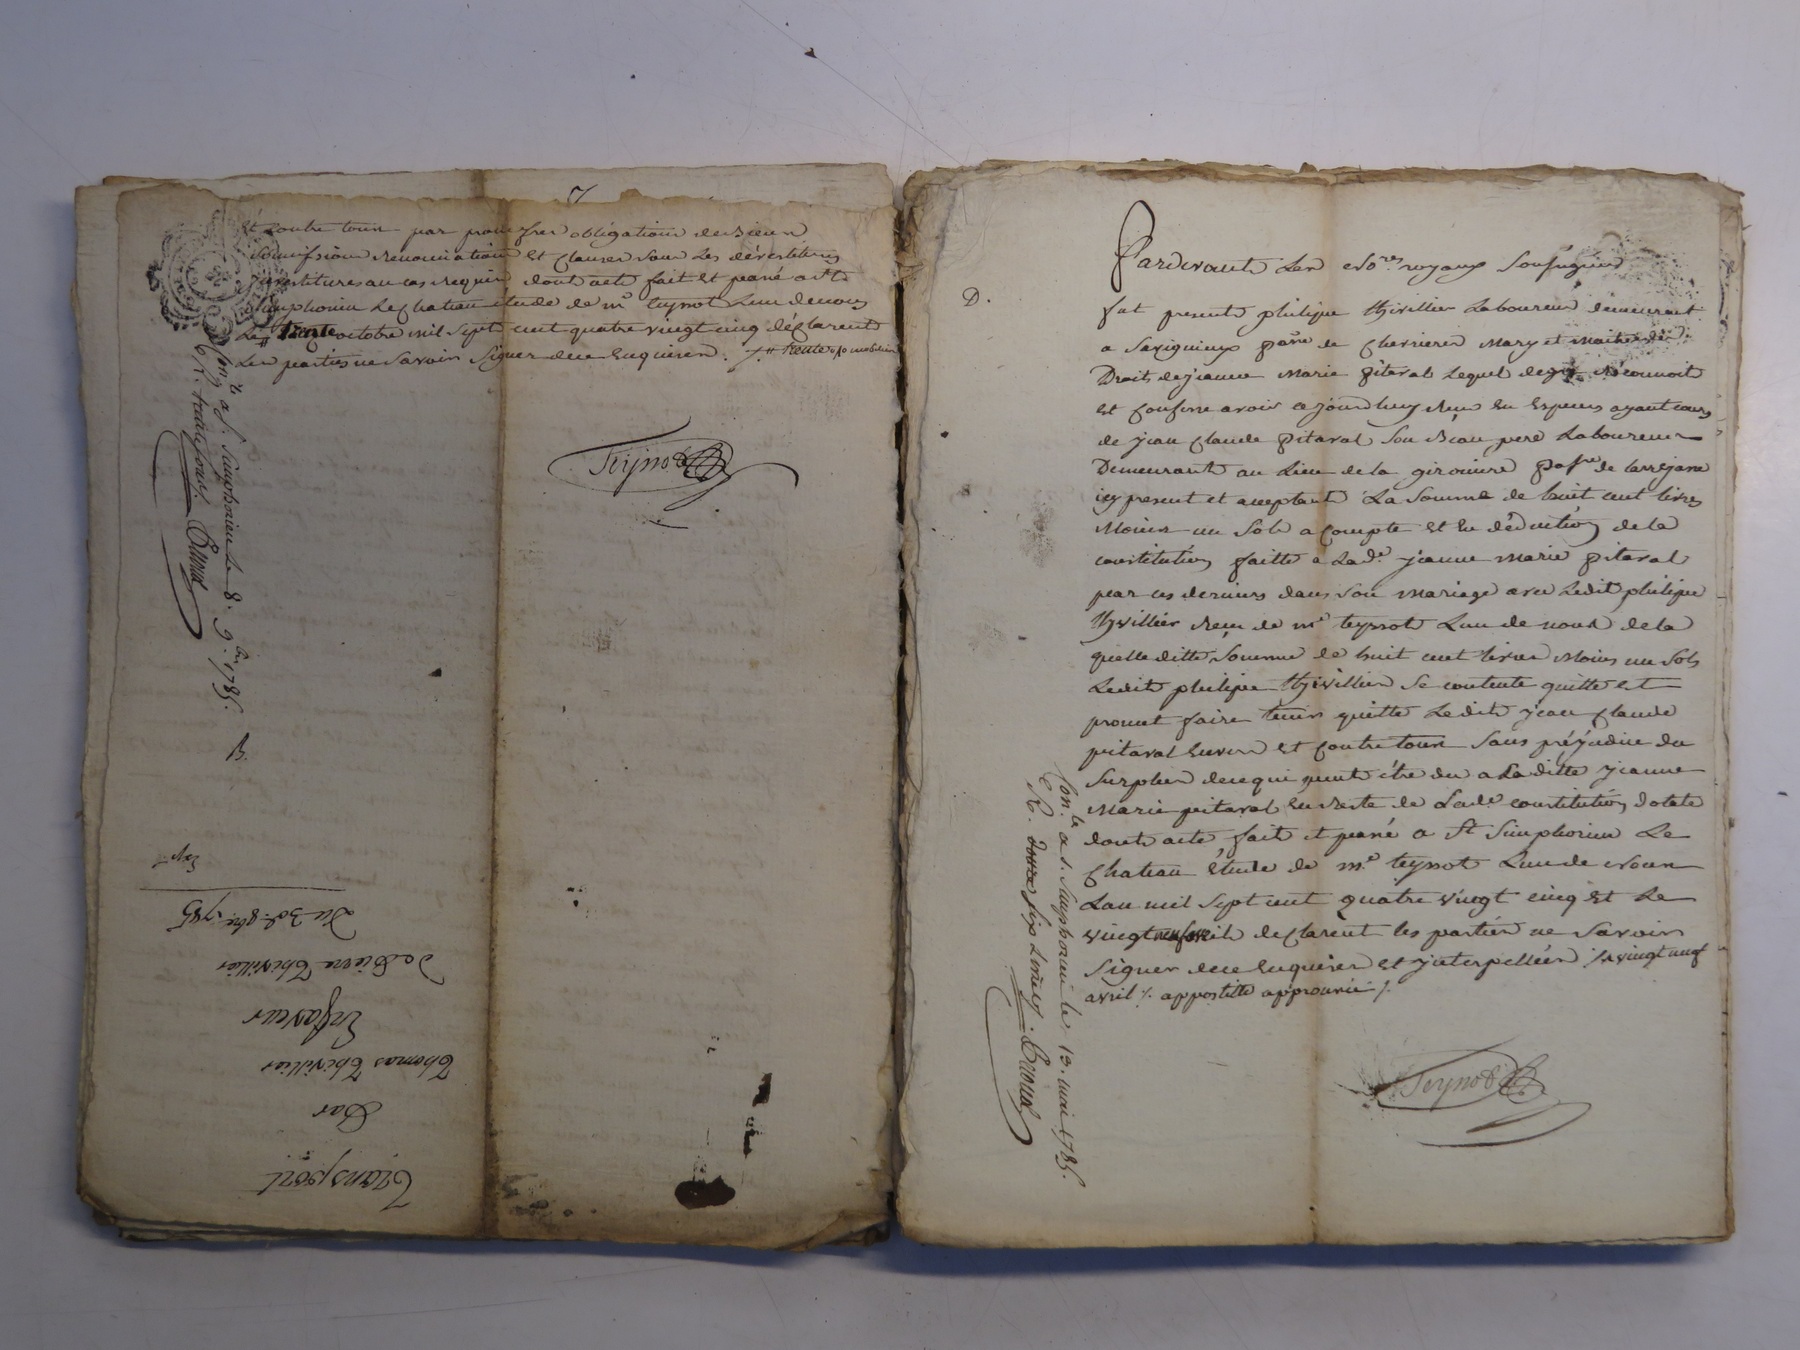 7
Et contre tous par promesses obligations de biens
Soumissions renonciations Et clauses sous Les dévestitures
Investitures au cas requis dont acte fait Et passé a St
Simphorien Le chateau étude de me teynot Lun de nous
Le trente octobre mil Sept cent quatre vingt cinq déclarent
Les parties ne Savoir Signer de ce Enquises ./. # trente
Teynot
Conlé a St Simphorien Le 8. 9bre 1785.
Bruval
Transport
Par
Thomas Thivillier
En faveur
de Pierre Thivillier
Du 30 8bre 1785
Exp
D.
Pardevant Les Nores royaux Soussignés
fut present philippe thivillier Laboureur demeurant
a Saviguieux parsse de Cherrieres Mary et Maitre des
Droits de jeanne Marie pitaval Lequel de gré Reconnoit
Et Confesse avoir cejourdhuy Reçu En Especes ayant cours
de jean Claude pitaval Son Beau pere Laboureur
Demeurant au Lieu de la gironiere passe de Larrajasse
icy present et acceptant La Somme de huit cent livres
Moins un Sols a Compte Et En déduction de la
constitution faitte a Lade jeanne Marie pitaval
par ces derniers dans Son Mariage avec Ledit philippe
thivillier Reçu de me teynot Lun de nous de la
quelle ditte Somme de huit cent livres Moins un Sols
Ledit philippe thivillier Se contente quitte Et
promet faire tenir quitte Ledit jean Claude
pitaval Envers Et Contre tous Sans préjudice du
Surplus de ce qui peut être du a La ditte jeanne
Marie pitaval En Reste de Lade constitution dotale
dont acte, fait et passé a St Simphorien Le
Chateau étude de me teynot Lun de Nous
Lan mil Sept cent quatre vingt cinq Et Le
vingt neuf declarent les parties ne Savoir
Signer de ce Enquises Et jnterpellées /. vingt neuf
avril /. appostille approuvée /.
Teynot
Conlé a S. Simphorien le 13. mai 1785.
R. douze six deniers. Bruval